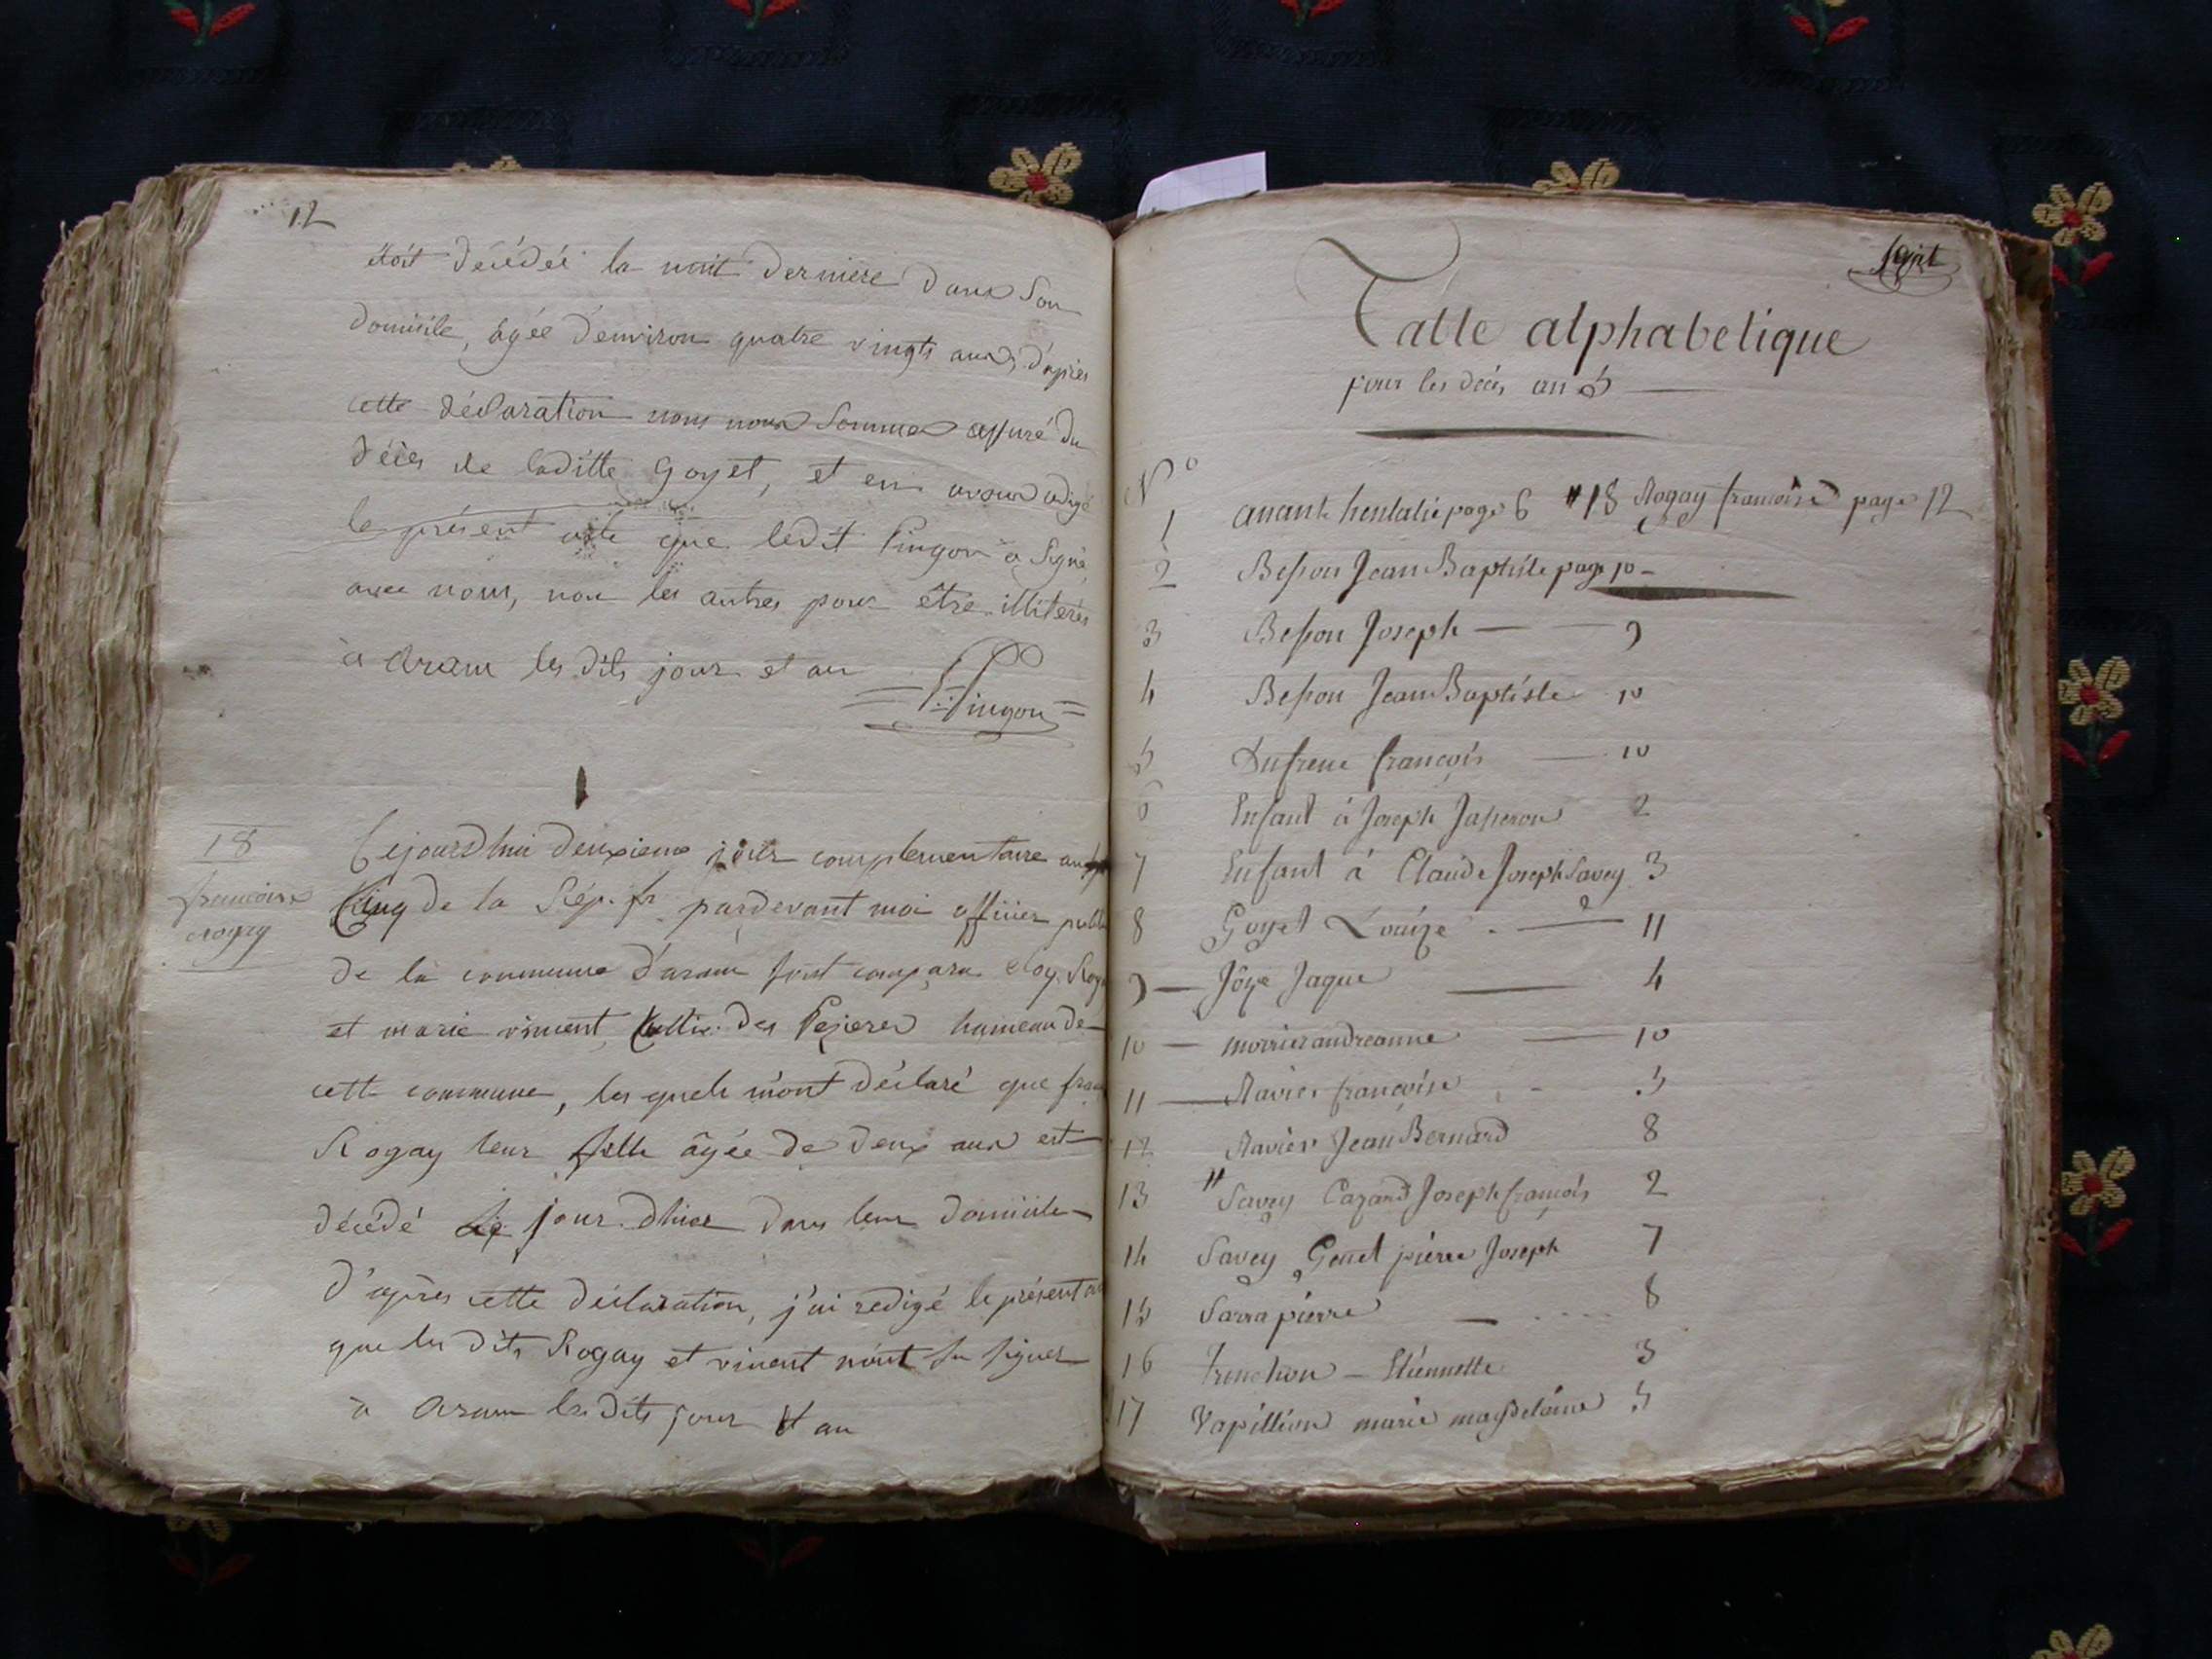 12
étoit décédée la nuit derniere dans son
domicile, âgée d'environ quatre vingts ans, d'après
cette déclaration nous nous sommes assuré du
décès de laditte Goyet, et en avons
le présent acte que ledit Pingon a signé
avec nous, non les autres pour être illiterés
à aram les dits jour et an
Pingon
18
francoise
rogay
Cejourdhui deuxieme jour complementaire an
Cinq de la Rép. fr. pardevant moi officier publi
de la commune d'aram sont comparu Rog
et marie vincent, des hameau de
cette commune, les quels m'ont déclaré que fran
Rogay leur fille âgée de deux ans est
décédé le jour d'hier dans leur domicile
D'après cette déclaration, j'ai redigé le présent a
que les dits Rogay et vincent n'ont su signer
à aram les dits jour et an
Table alphabetique
pour les décès an 5
N°
1 page 6 #18 Rogay francoise page 12
2 Besson Jean Baptiste page 10
3 Besson Joseph — — 9
4 Besson Jean Baptiste 10
5 Dufrene françois — 10
6 Enfant à Joseph 2
7 Enfant à Claude Joseph Savey 3
8 Goyet Louize — 11
9 — Jôye Jaque — 4
10 — andreanne — 10
11 — Ravier françoise 5
12 Ravier Jean Bernard 8
13 " Savey Cazard Joseph françois 2
14 Savey Genet pierre Joseph 7
15 Sarra pierre — 8
16 Trenchon — Etiennette 3
17 Vapillion marie magdelaine 5